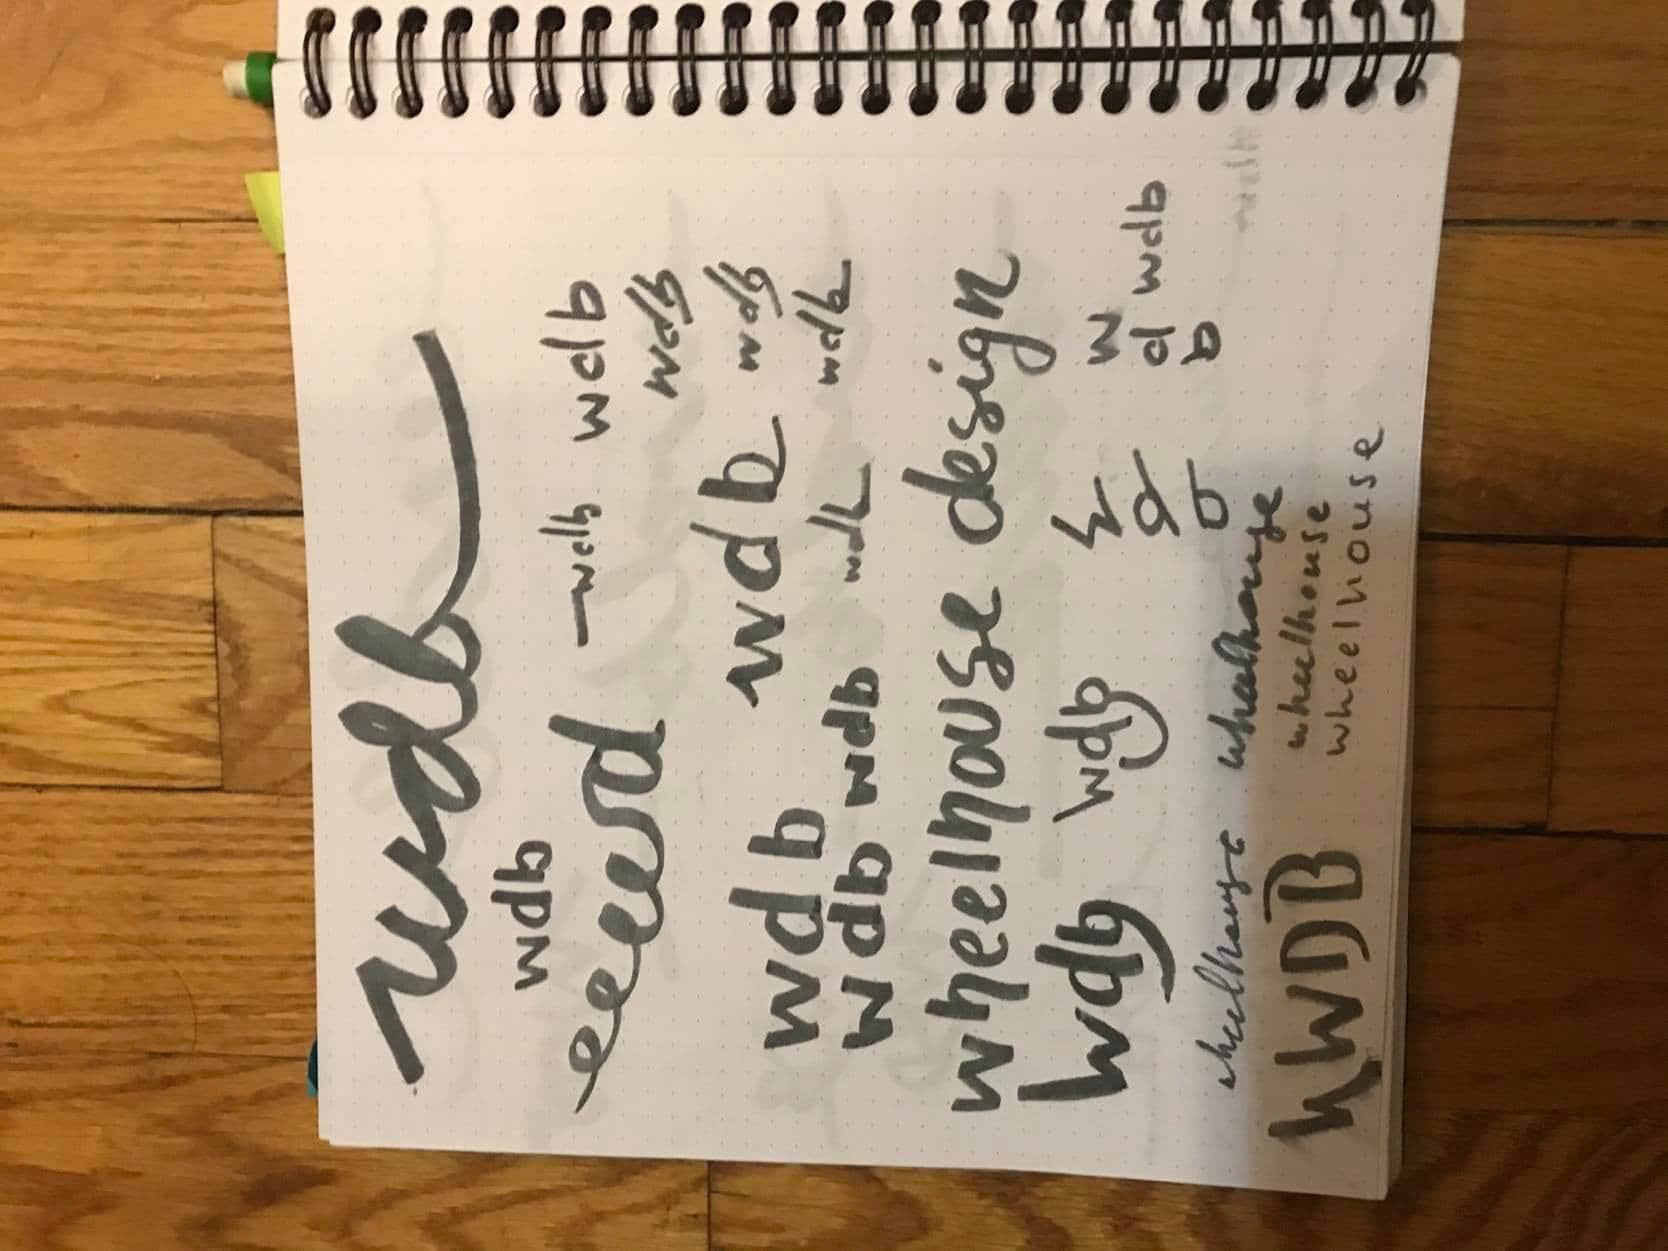 wdb
wdb -wdb wdb
eeewd wdb
wdb wdb
wdb wdb wdb
wdb wdb wdb wdb
wheelhouse design
wdb wdb w w
d d wdb
b b
wheelhouse wheelhouse wheelhouse
WDB wheelhouse
wheelhouse